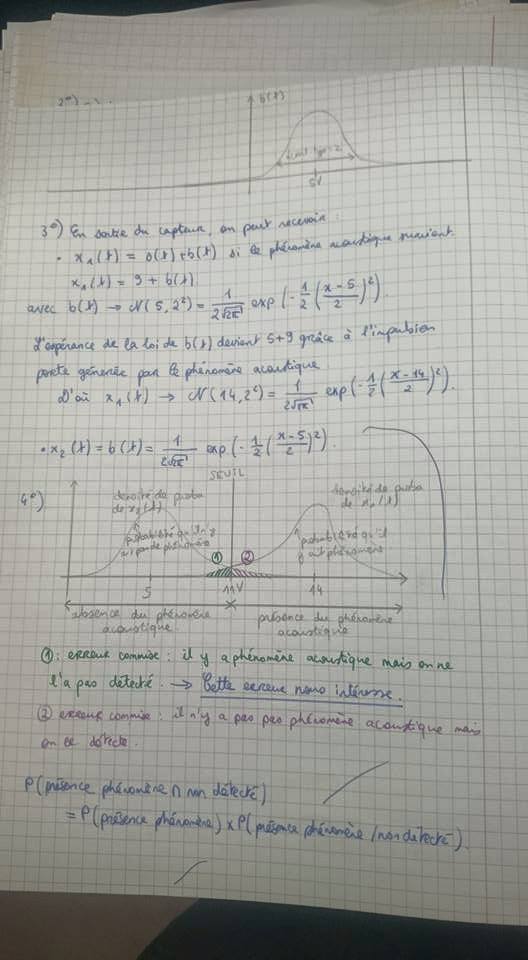 2°)
b(t)
écart type = 2
5V
3°) En sortie du capteur, on peut recevoir :
• x₁(t) = s(t) + b(t) si le phénomène acoustique survient.
x₁(t) = 9 + b(t)
avec b(t) → N(5, 2²) = 1/(2√2π) exp(-1/2 ((x-5)/2)²).
L'espérance de la loi de b(t) devient 5+9 grâce à l'impulsion
porte générée par le phénomène acoustique
D'où x₁(t) → N(14, 2²) = 1/(2√2π) exp(-1/2 ((x-14)/2)²).
• x₂(t) = b(t) = 1/(2√2π) exp(-1/2 ((x-5)/2)²).
4°)
SEUIL
densité de proba
de x₂(t)
densité de proba
de x₁(t)
probabilité qu'il n'y
ait pas de phénomène
probabilité qu'il
y ait phénomène
① ②
5 11V 14
absence du phénomène
acoustique.
présence du phénomène
acoustique
①: erreur commise : il y a phénomène acoustique mais on ne
l'a pas détecté. → Cette erreur nous intéresse.
② erreur commise : il n'y a pas pas phénomène acoustique mais
on le détecte.
P(présence phénomène ∩ non détecté)
= P(présence phénomène) x P(présence phénomène / non détecté).